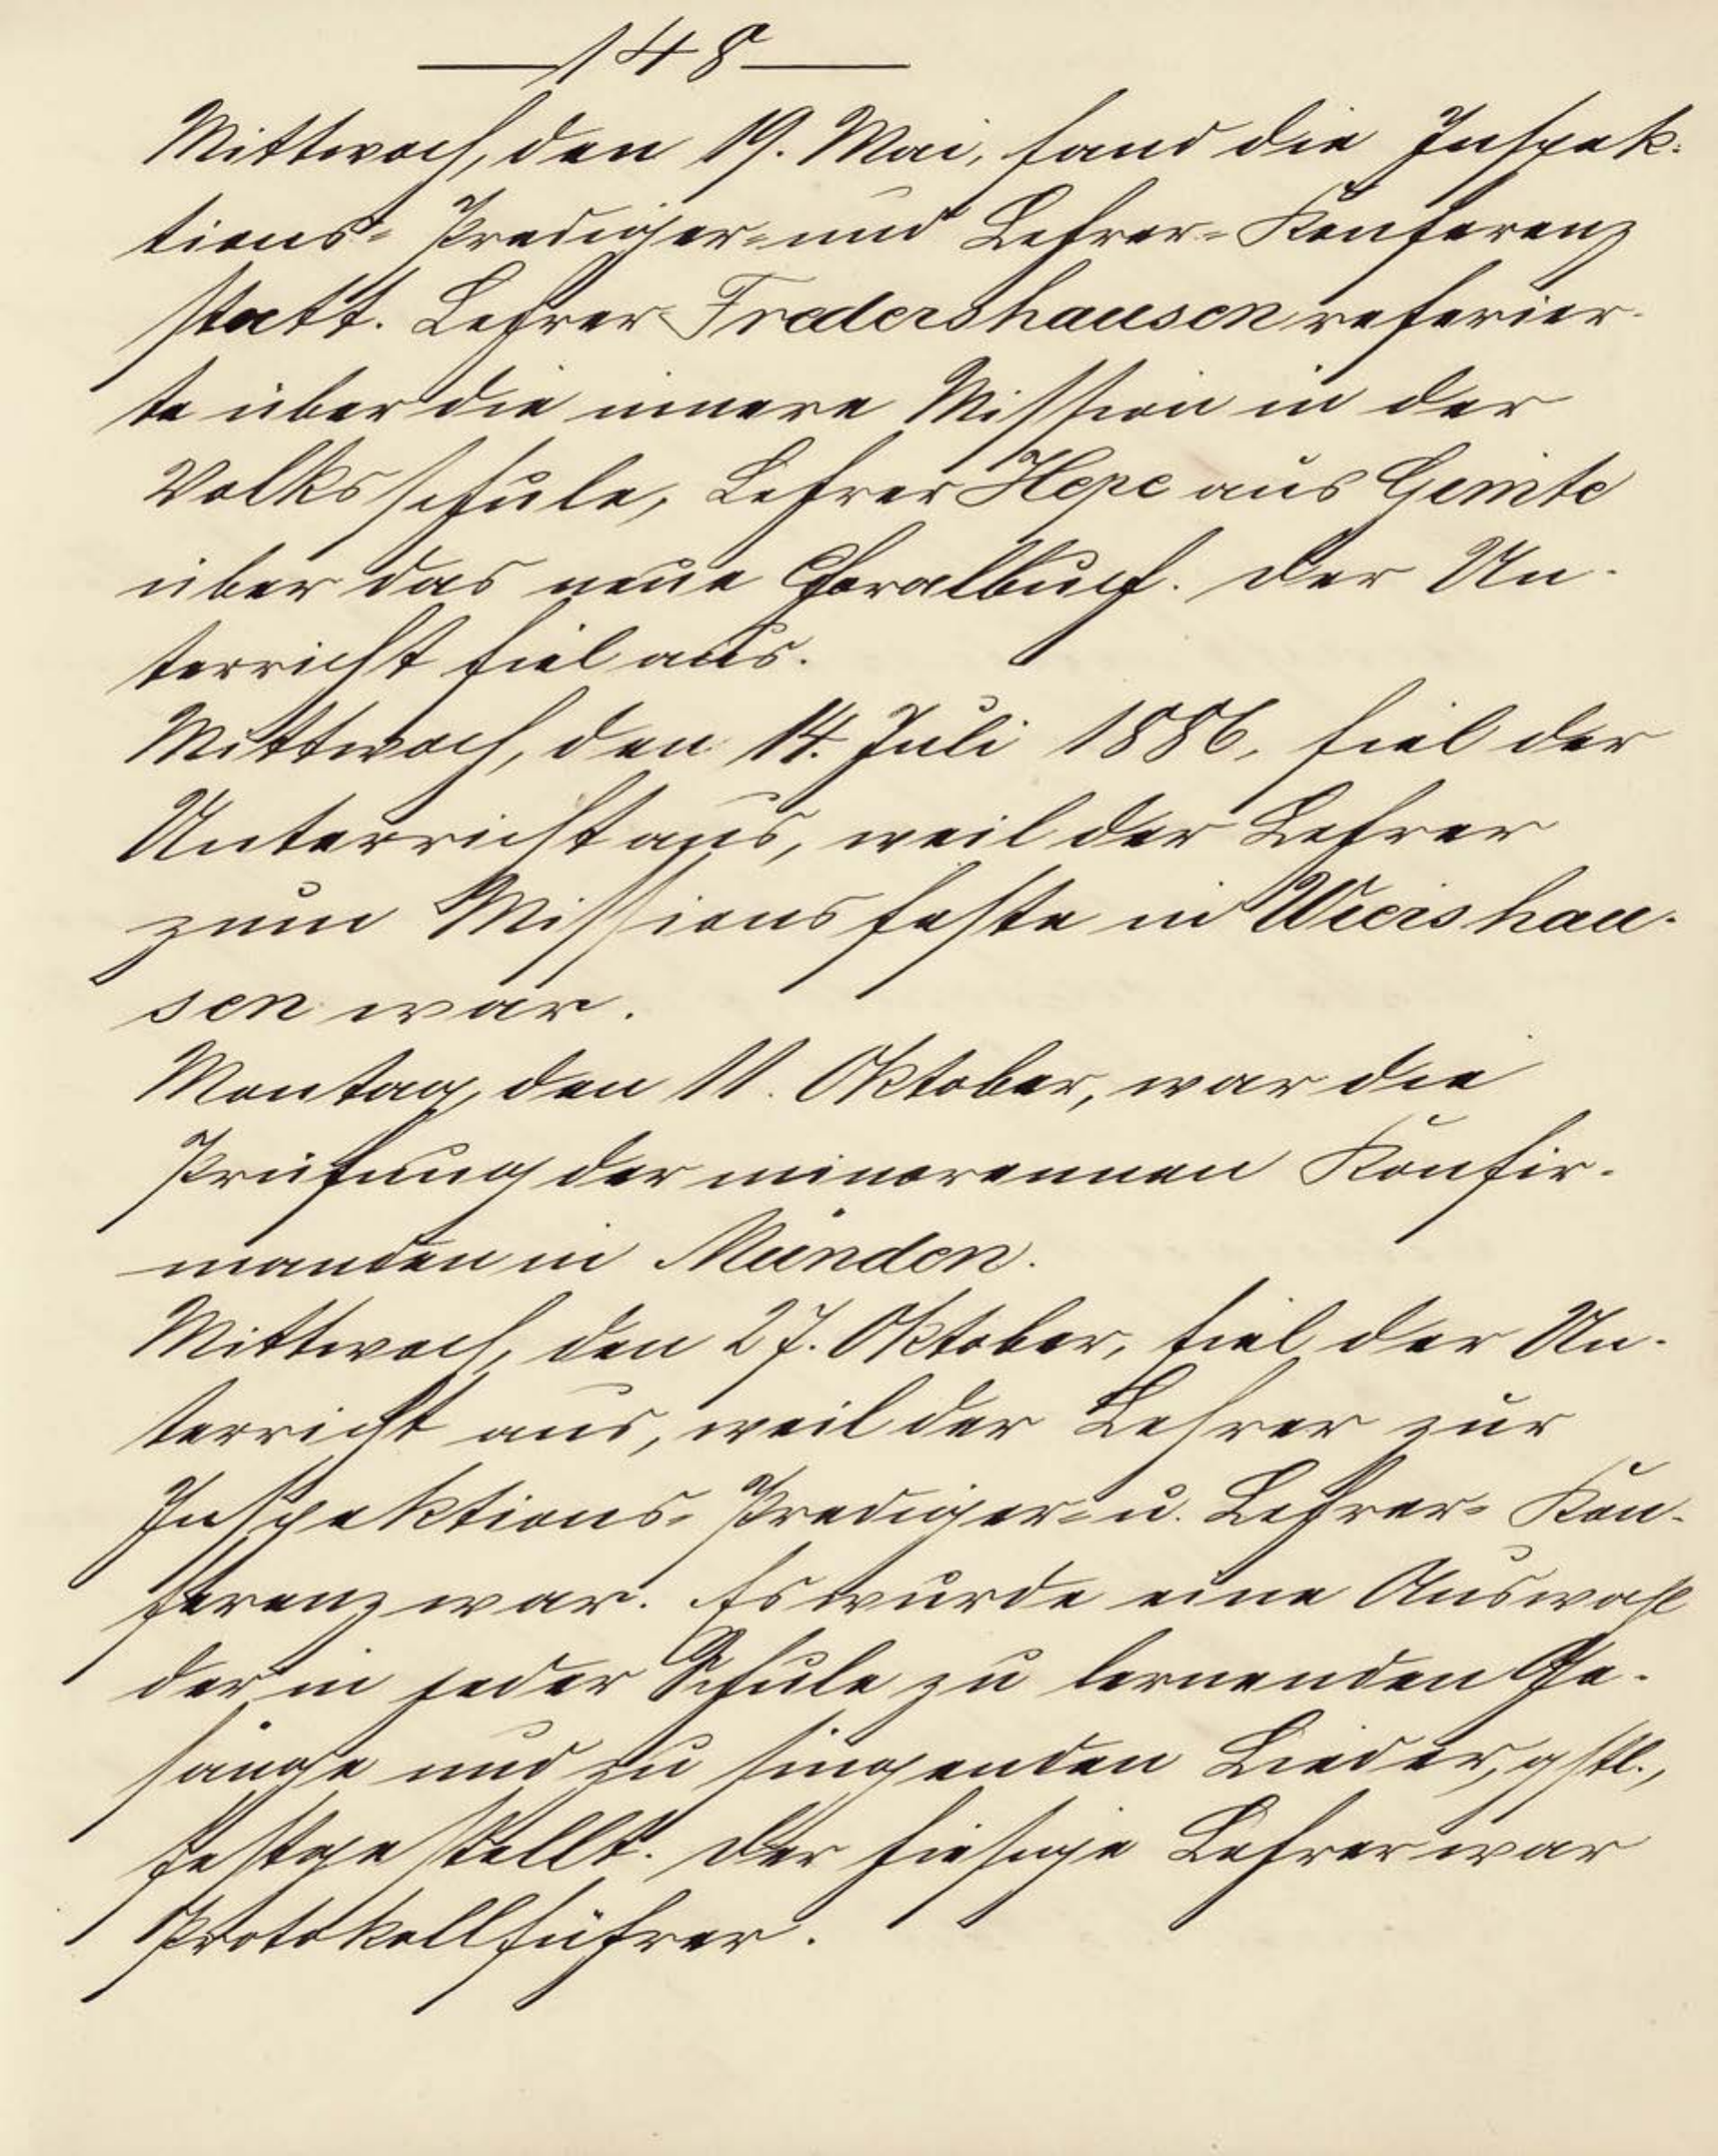 148
Mittwoch, den 19. Mai, fand die Inspek-
tions- Prediger- und Lehrer-Konferenz
statt. Lehrer Fredershausen referier-
te über die innere Mission in der
Volksschule, Lehrer Hepe aus Gimte
über das neue Choralbuch. Der Un-
terricht fiel aus.
Mittwoch, den 14. Juli 1886, fiel der
Unterricht aus, weil der Lehrer
zum Missionsfeste in Wiershau-
sen war.
Montag, den 11. Oktober, war die
Prüfung der minorennen Konfir-
manden in Münden.
Mittwoch, den 27. Oktober, fiel der Un-
terricht aus, weil der Lehrer zur
Inspektions- Prediger- u. Lehrer- Kon-
ferenz war. Es wurde eine Auswahl
der in jeder Schule zu lernenden Ge-
sänge und zu singenden Lieder, gstl.,
festgestellt. Der hiesige Lehrer war
Protokollführer.